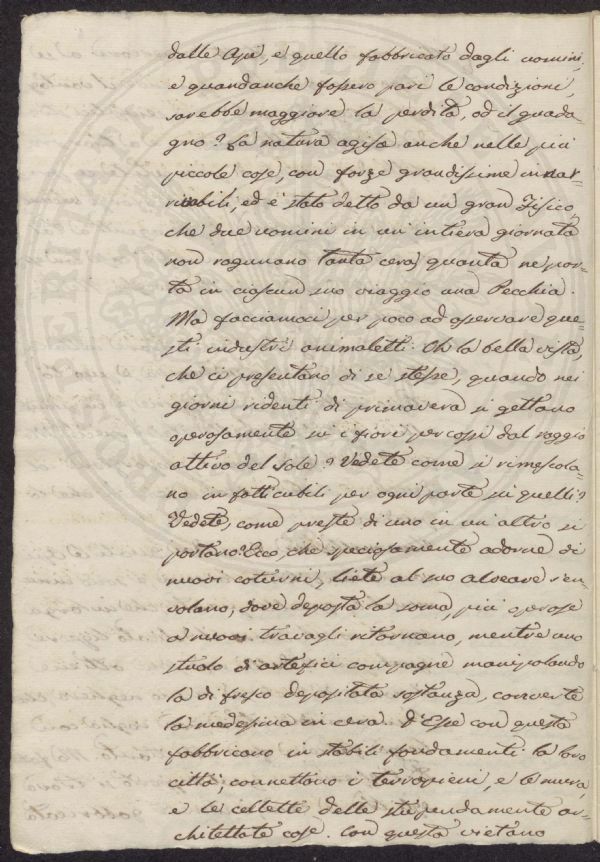 dalle Api, e quello fabbricato dagli uomini,
e quandanche fossero pari le condizioni,
sarebbe maggiore la perdita, od il guada-
gno? La natura agisce anche nelle più
piccole cose, con forze grandissime innar-
rivabili; ed è stato detto da un gran Fisico,
che due uomini in un' intiera giornata
non ragunano tanta cera, quanta ne por-
ta in ciascun suo viaggio una Pecchia.
Ma facciamoci per poco ad osservare que-
sti industri animaletti. Oh la bella vista,
che ci presentano di se stesse, quando nei
giorni ridenti di primavera si gettano
operosamente su i fiori percossi dal raggio
attivo del sole? Vedete come si rimescola-
no infatticabili per ogni parte su quelli?
Vedete, come preste di uno in un' altro si
portano? Ecco, che speciosamente adorne di
nuovi coturni, liete al suo alveare s'en
volano, dove deposta la soma, più operose
a nuovi travagli ritornano, mentre uno
stuolo di artefici compagne manipolando
la di fresco depositata sostanza, converte
la medesima in cera. D'Esse con questa
fabbricano in stabili fondamenti la loro
città; connettono i terrapieni, e le mura,
e le cellette delle stupendamente ar-
chitettate case. Con questa vietano